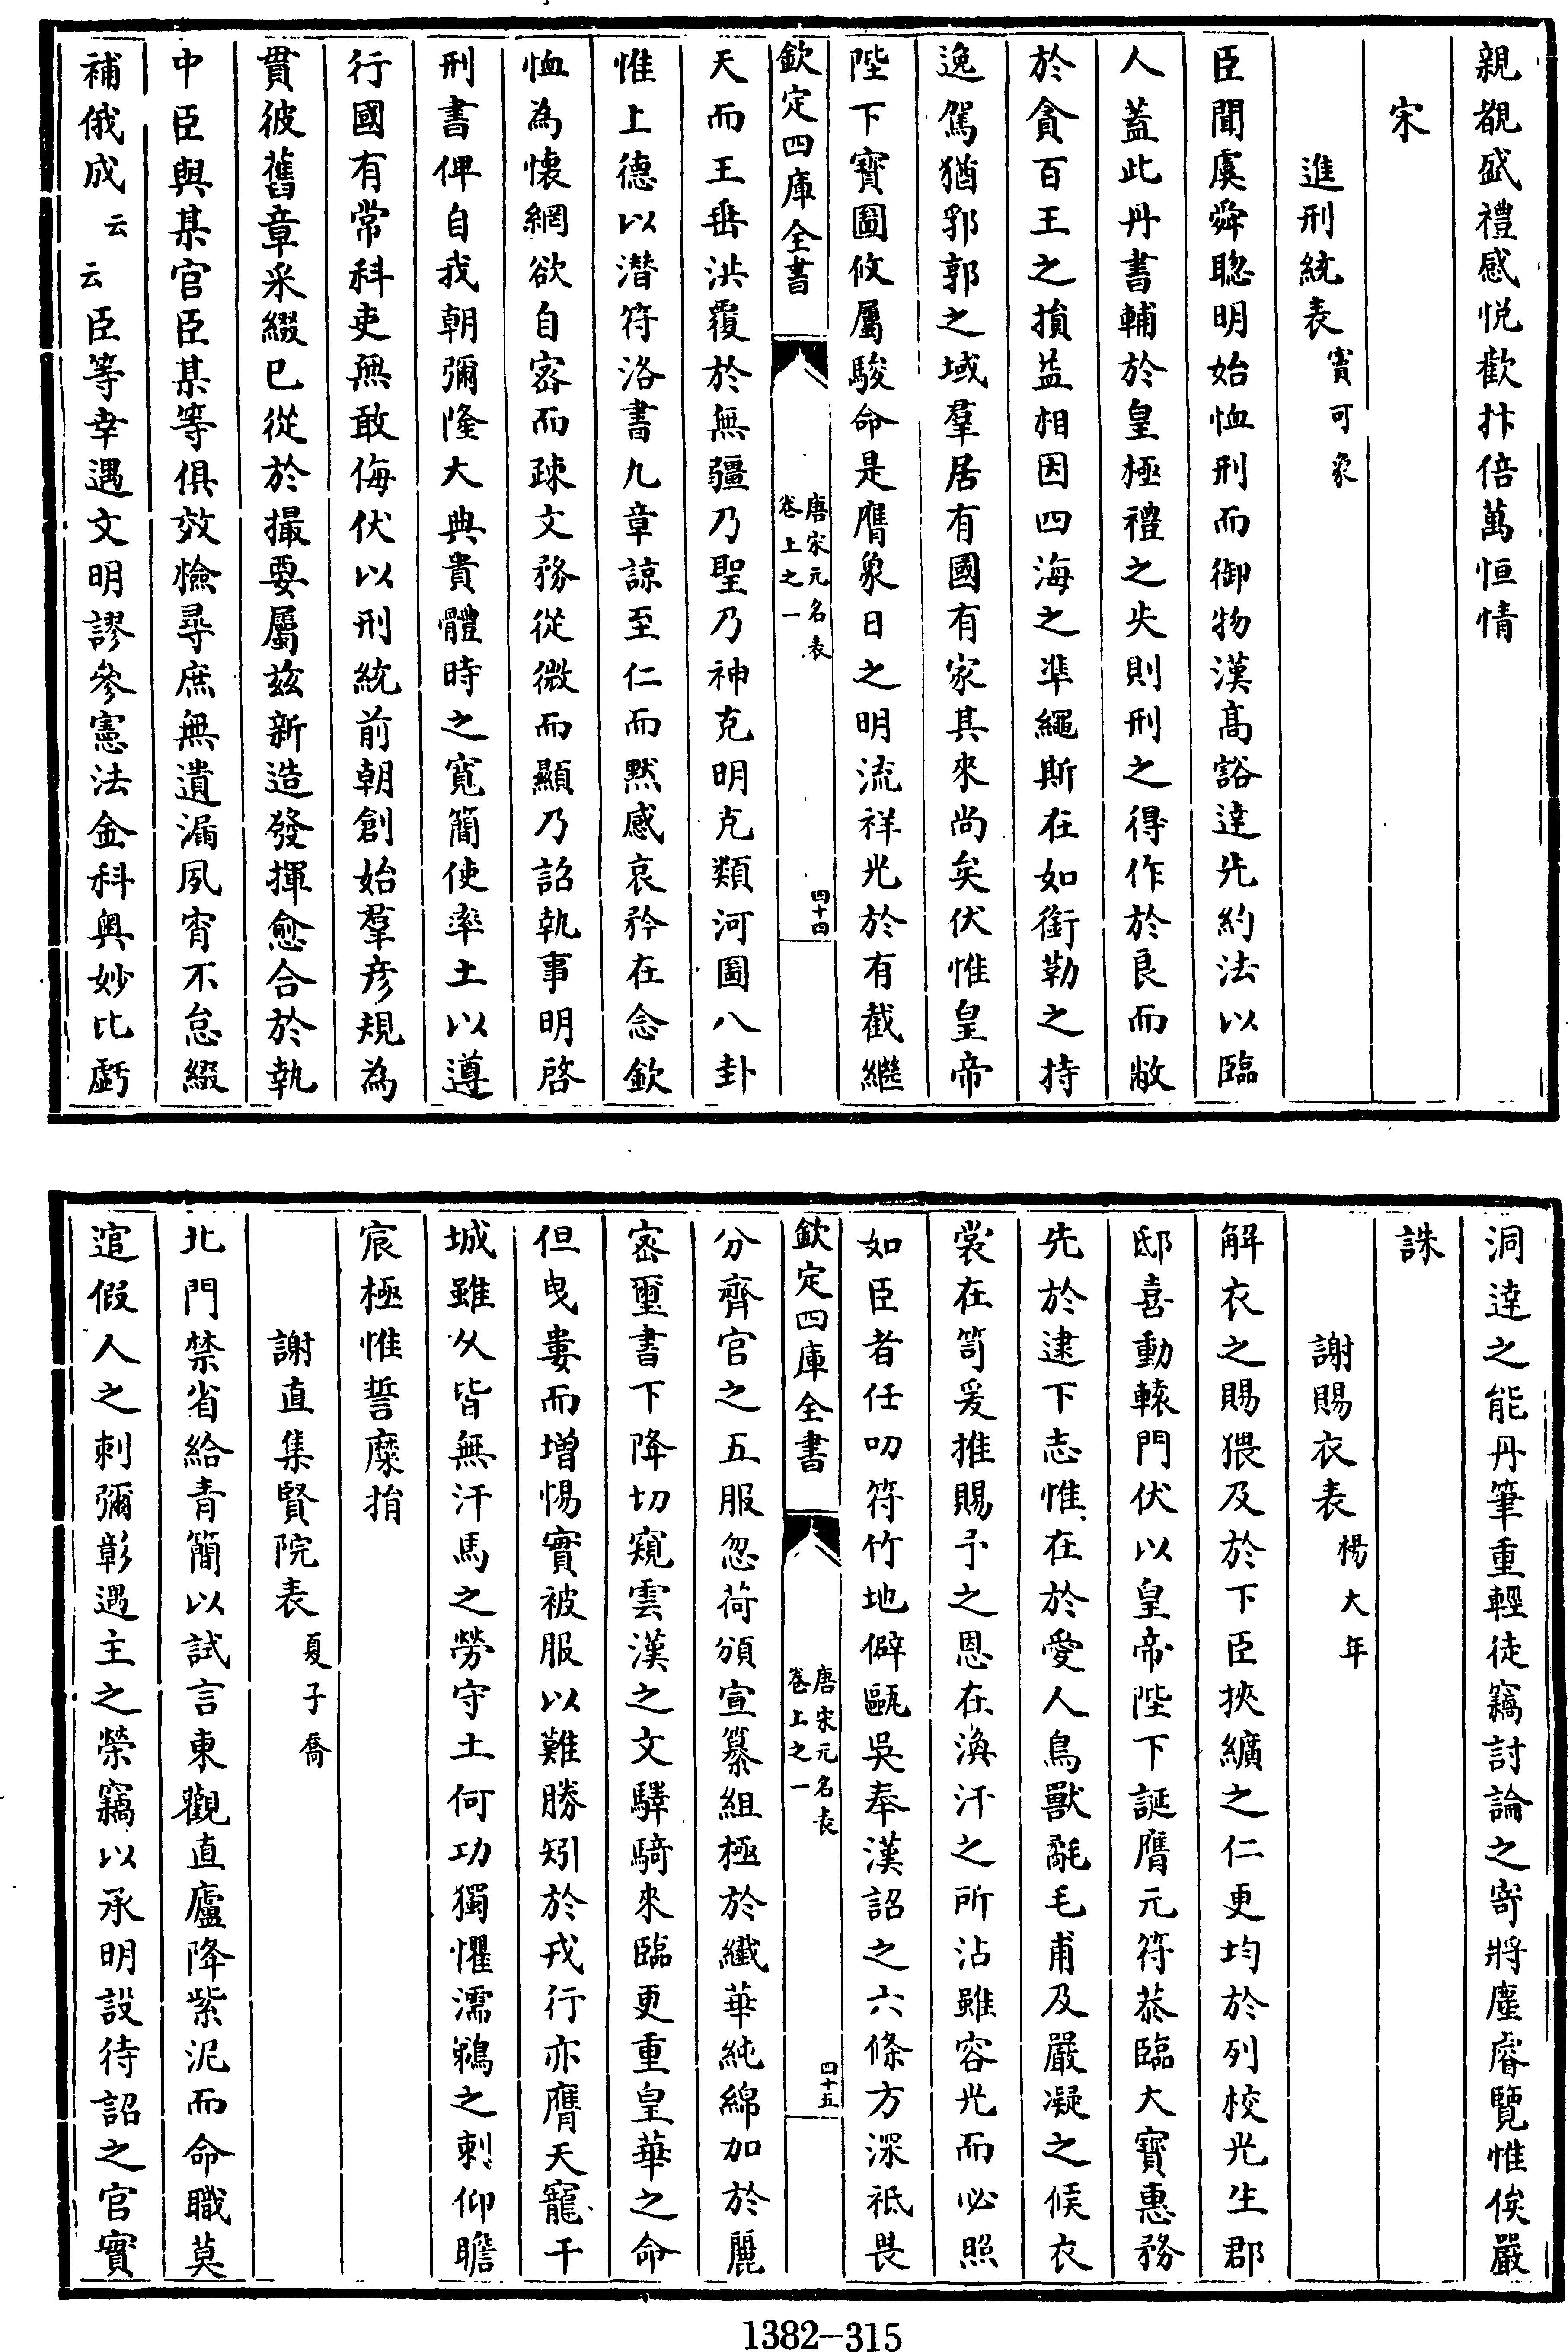 親覩盛禮感悦歡抃倍萬恒情
宋
進刑統表竇可象
臣聞虞舜聦明始恤刑而御物漢髙豁達先約法以臨
人蓋此丹書輔於皇極禮之失則刑之得作於良而敝
於貪百王之損益相因四海之凖繩斯在如銜勒之持
逸駕猶郛郭之域羣居有國有家其來尚矣伏惟皇帝
陛下寳圖攸屬駿命是膺象日之明流祥光於有截繼
欽定四庫全書
唐宋元名表
卷上之一
四十四
天而王垂洪覆於無疆乃聖乃神克明克類河圖八卦
惟上德以潛符洛書九章諒至仁而黙感哀矜在念欽
恤為懐網欲自宻而疎文務從微而顯乃詔執事明啓
刑書俾自我朝彌隆大典貴體時之寛簡使率土以遵
行國有常科吏無敢侮伏以刑統前朝創始羣彦規為
貫彼舊章采綴已從於撮要屬兹新造發揮愈合於執
中臣與某官臣某等俱效檢尋庶無遺漏夙宵不怠綴
補俄成云云臣等幸遇文明謬參憲法金科奥妙比虧
洞逹之能丹筆重輕徒竊討論之寄將塵睿覽惟俟嚴
誅
謝賜衣表楊大年
解衣之賜猥及於下臣挾纊之仁更均於列校光生郡
邸喜動轅門伏以皇帝陛下誕膺元符恭臨大寳惠務
先於逮下志惟在於愛人鳥獸氄毛甫及嚴凝之候衣
裳在笥爰推賜予之恩在渙汗之所沾雖容光而必照
如臣者任叨符竹地僻甌吳奉漢詔之六條方深祗畏
欽定四庫全書
唐宋元名表
卷上之一
四十五
分齊官之五服忽荷頒宣纂組極於纎華純綿加於麗
宻璽書下降切窺雲漢之文驛騎來臨更重皇華之命
但曳婁而增惕實被服以難勝矧於戎行亦膺天寵干
城雖久皆無汗馬之勞守土何功獨懼濡鵜之刺仰瞻
宸極惟誓糜捐
謝直集賢院表夏子喬
北門禁省給青簡以試言東觀直廬降紫泥而命職莫
逭假人之刺彌彰遇主之榮竊以承明設待詔之官實
1382-315